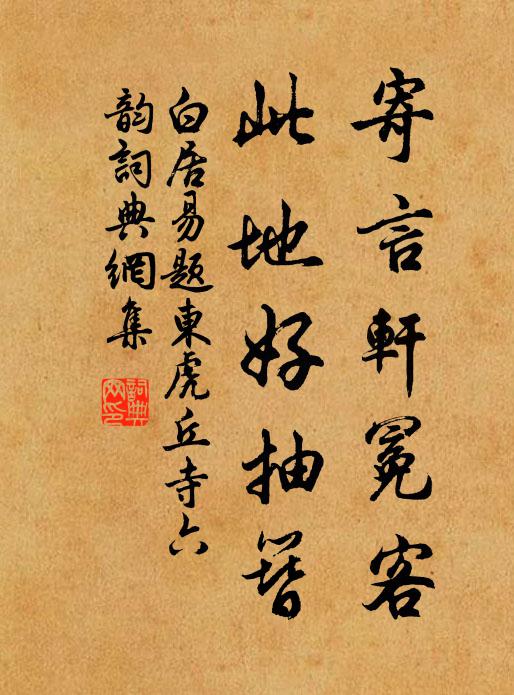 寄言軒冕客
此地好抽簪
白居易題東虎丘寺六
韵詞典網集
詞典網印